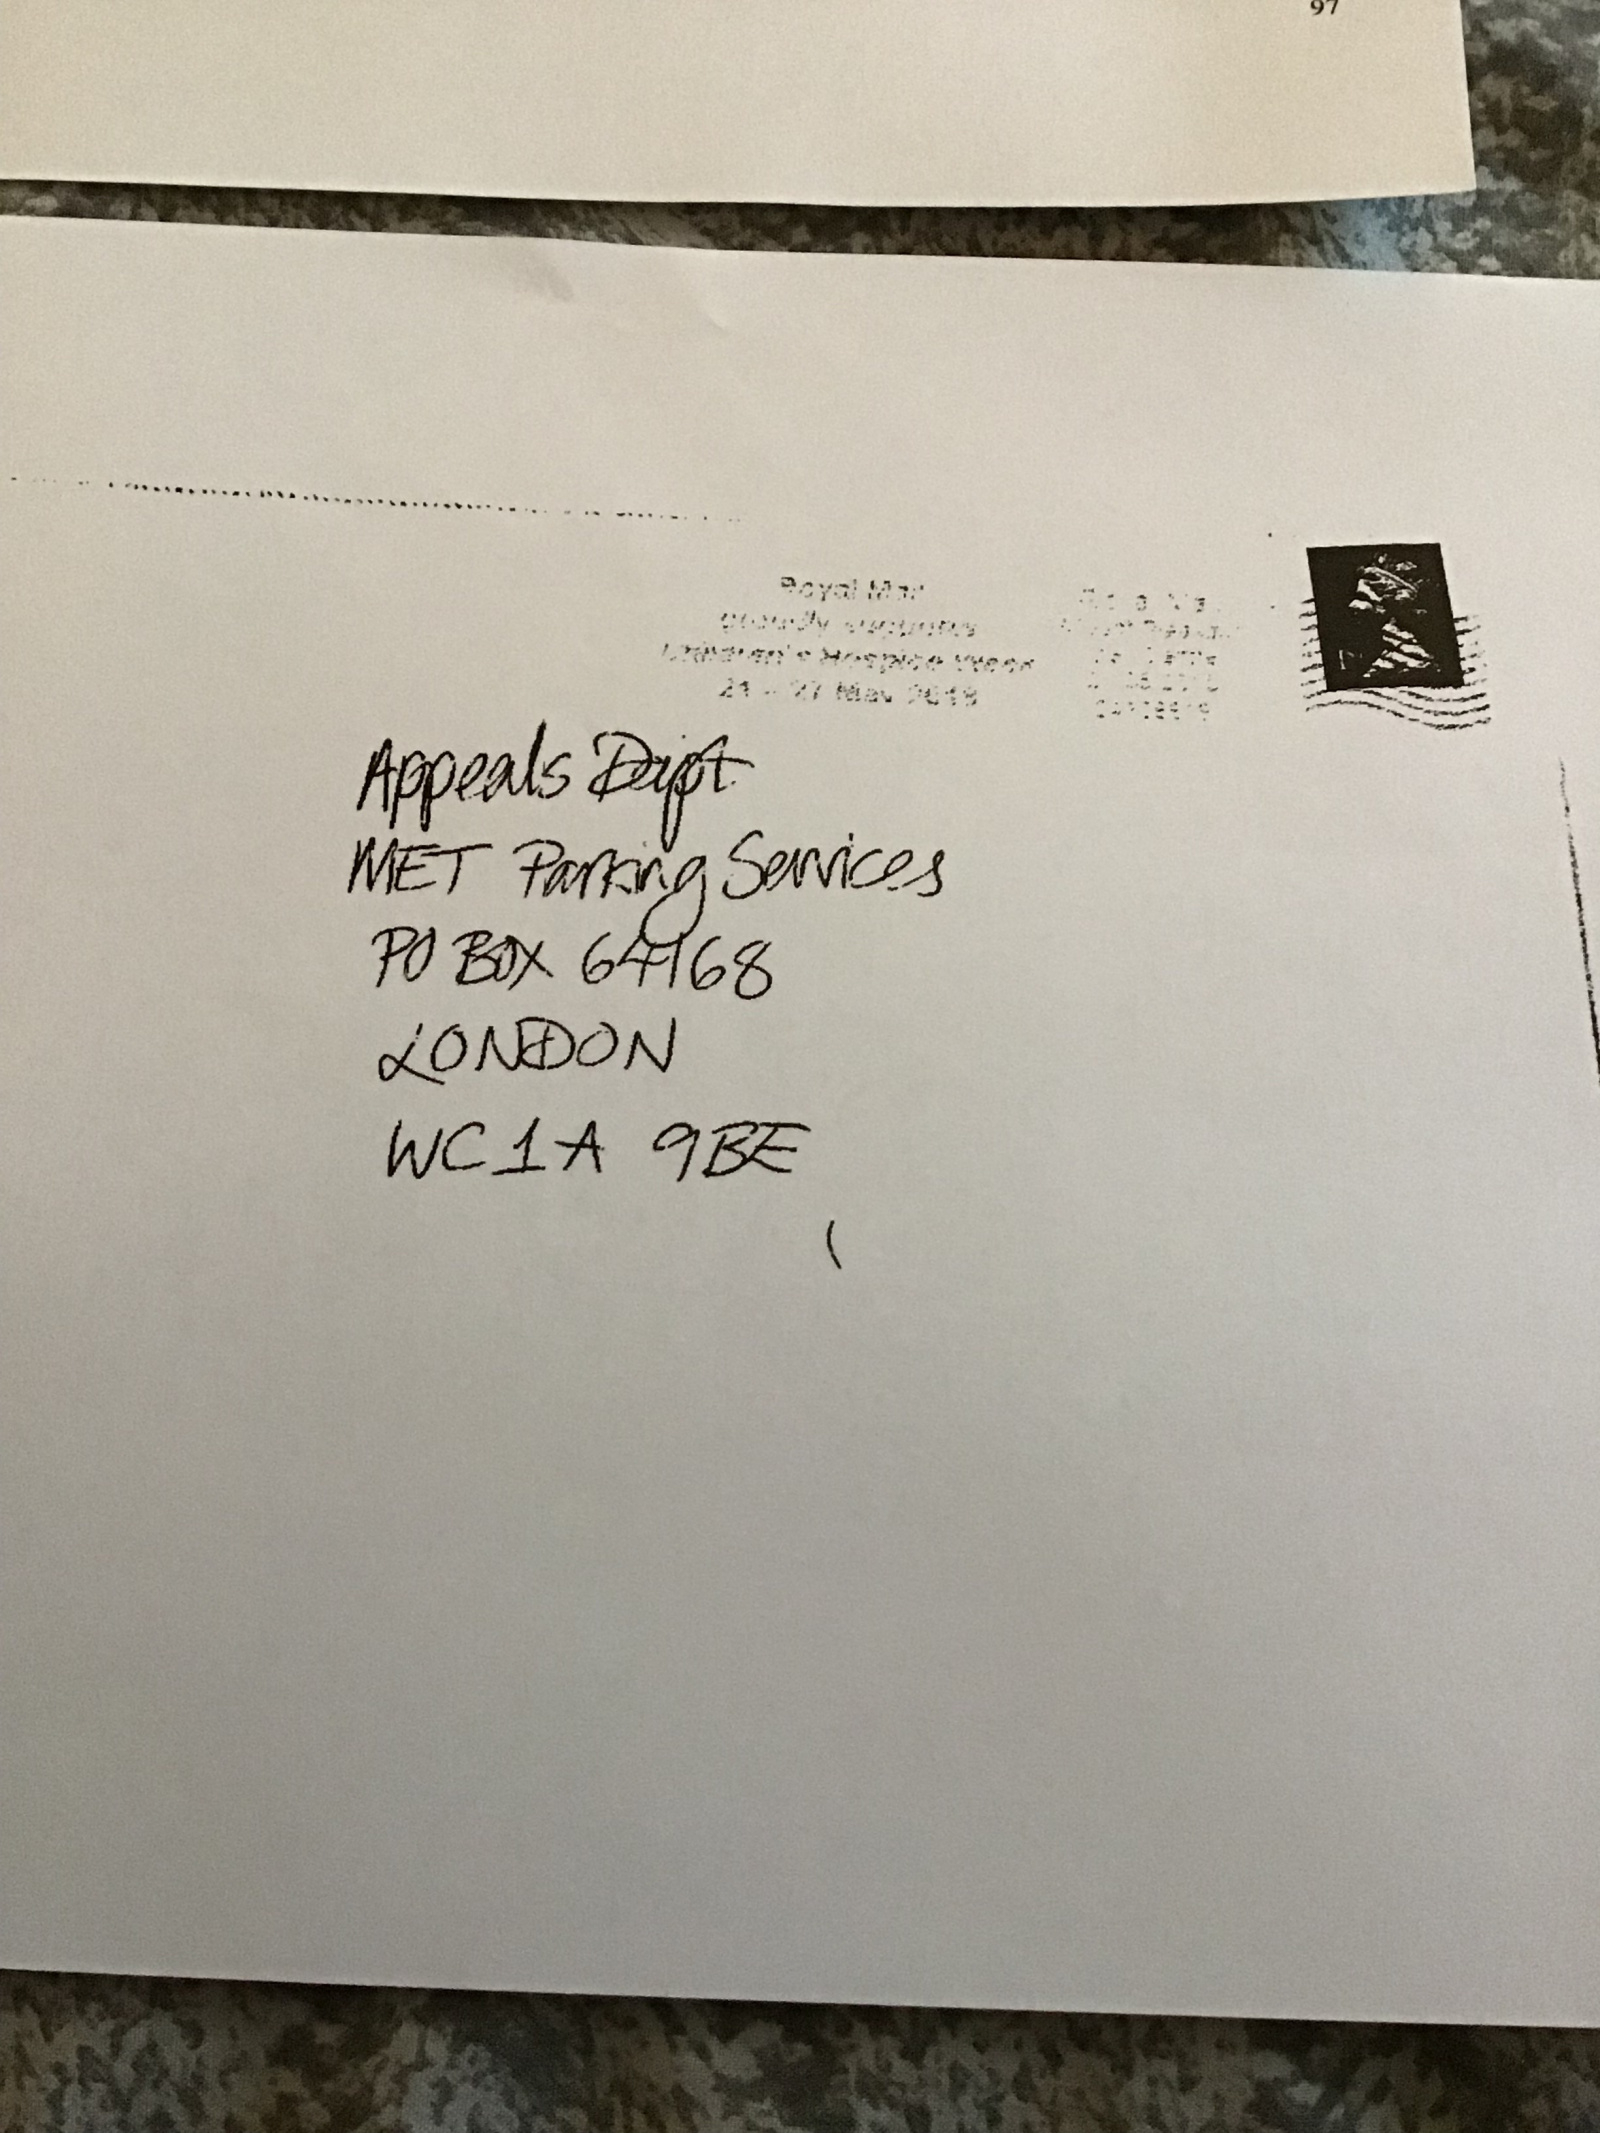 97
Royal Mail
proudly supports
Children's Hospice Week
21 - 27 May 2018
Appeals Dept
MET Parking Services
PO BOX 64168
LONDON
WC1A 9BE